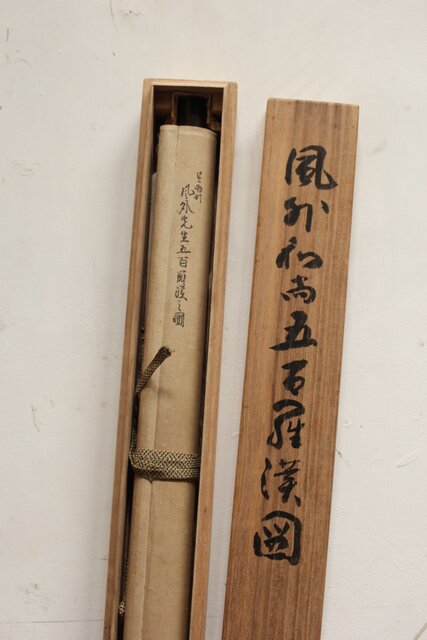 風外和尚五百羅漢図
風外先生五百羅漢之圖